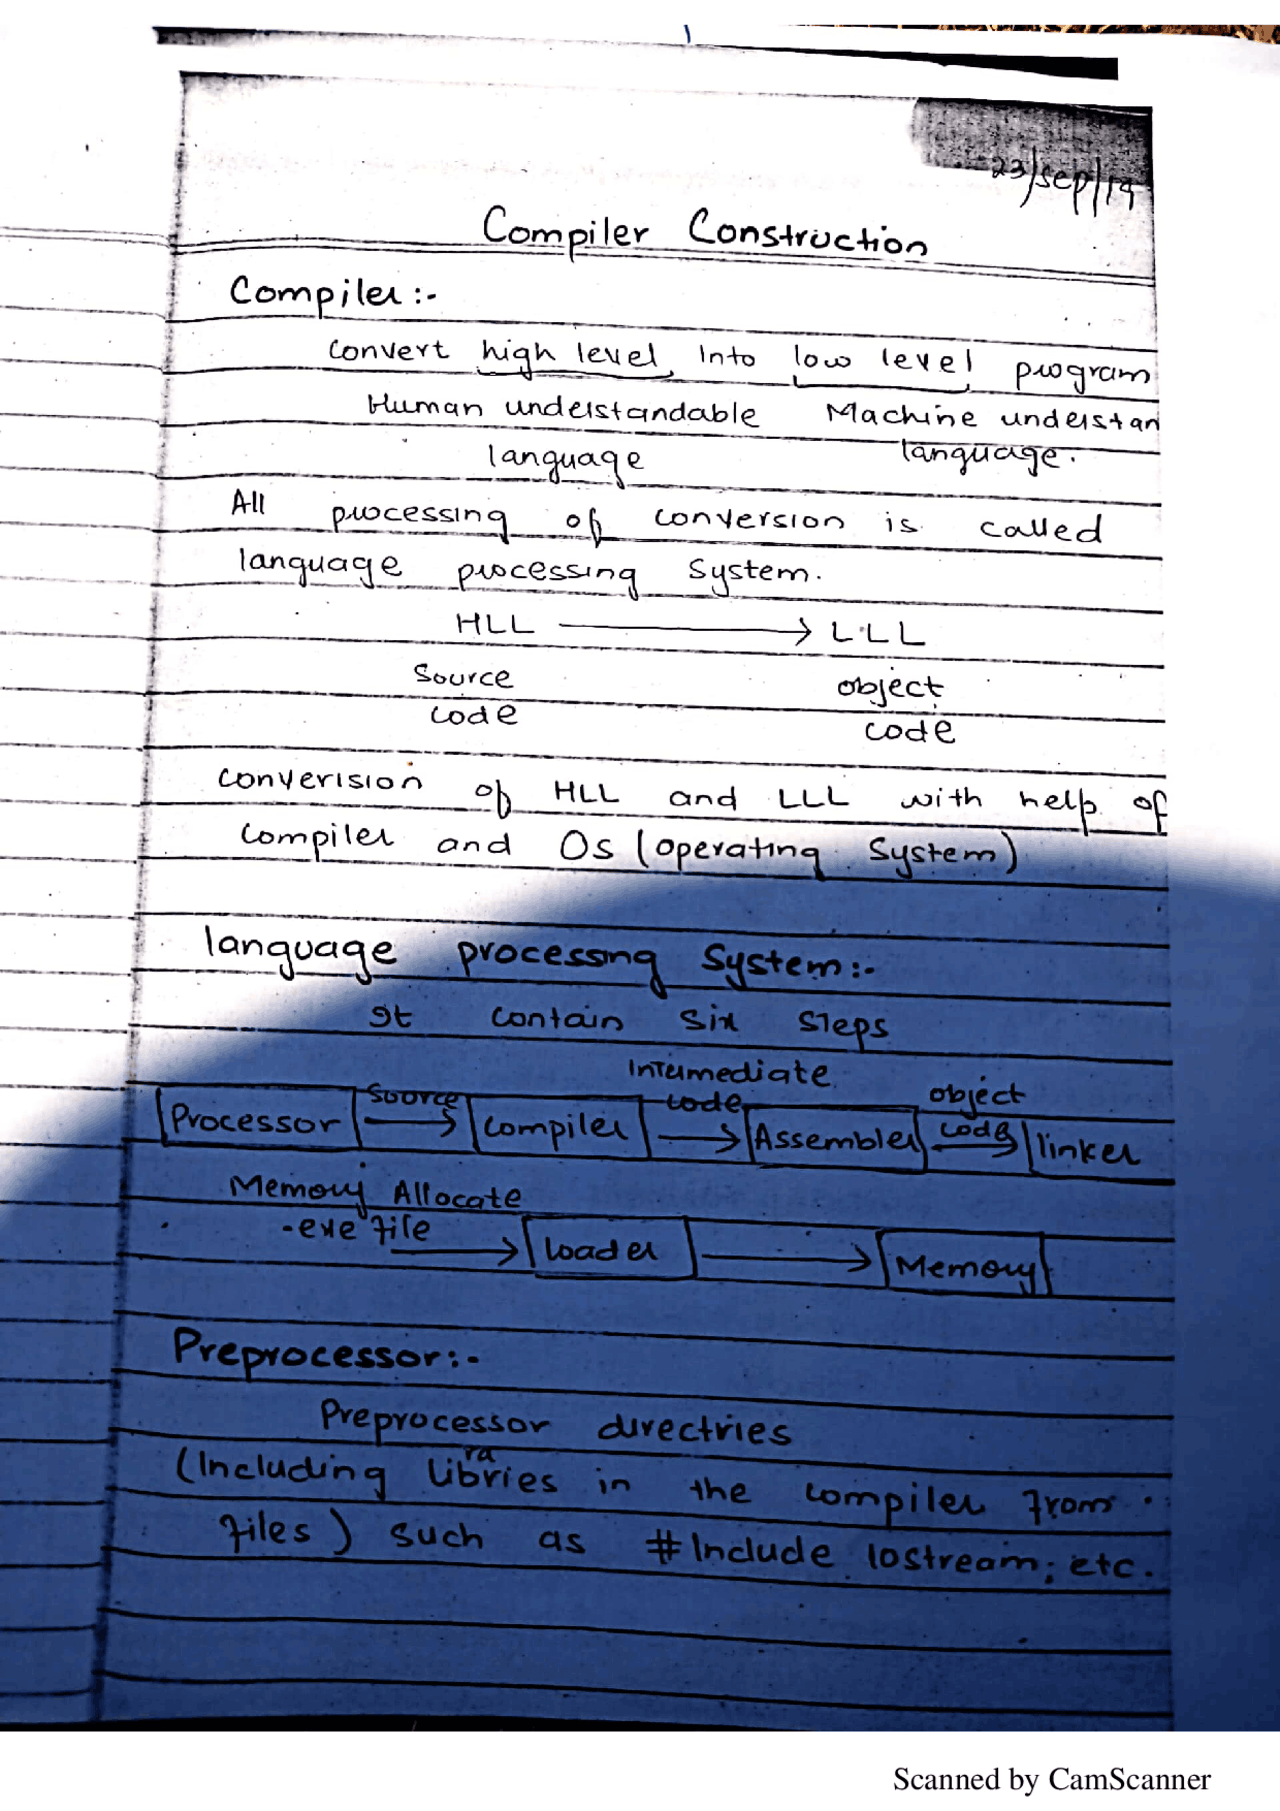 23/sep/19
Compiler Construction
Compiler:-
Convert high level into low level program
Human understandable Machine understan
language language.
All processing of conversion is called
language processing System.
HLL → LLL
Source object
code code
converision of HLL and LLL with help of
compiler and Os (operating System)
language processing System:-
It contain six steps
Intermediate
source code object
Processor → Compiler → Assembler code → linker
Memory Allocate
.exe file → Loader → Memory
Preprocessor:-
Preprocessor directries
ra
(Including libries in the compiler from
files) such as #Include iostream; etc.
Scanned by CamScanner